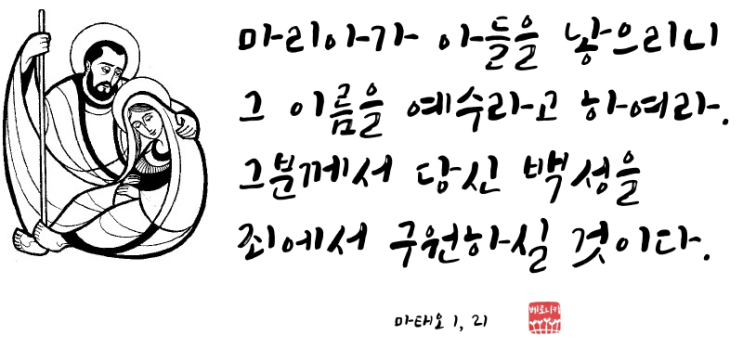 마리아가 아들을 낳으리니
그 이름을 예수라고 하여라.
그분께서 당신 백성을
죄에서 구원하실 것이다.
마태오 1, 21
베로니카